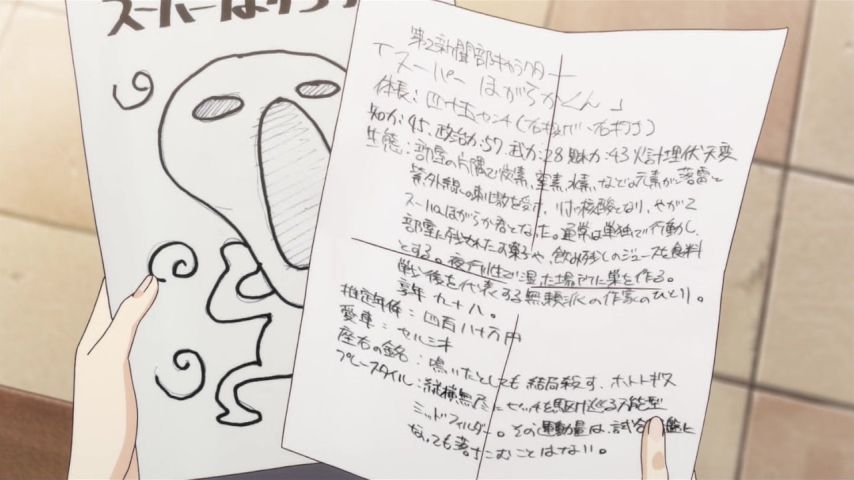 スーパーほがらか
第2新聞部キャラクター
「スーパーほがらかくん」
体長:四十五センチ(右投げ、右打ち)
知力:45、政治力:57、武力:28 魅力:43 火計 埋伏 天変
生態:部屋の片隅で炭素、窒素、水素、などの元素が落雷と
紫外線の刺激を受け、リボ核酸となり、やがて
スーパーほがらか君となった。通常は単独で行動し、
部屋に残されたお菓子や、飲み残しのジュースを食料
とする。夜行性で湿った場所に巣を作る。
戦後を代表する無頼派の作家のひとり。
享年 九十八。
推定年俸:四百八十万円
愛車:セルシオ
座右の銘:鳴いたとしても結局殺す、ホトトギス
プレースタイル:縦横無尽にピッチを駆け巡る万能型
ミッドフィルダー。その運動量は、試合終盤に
なっても落ちこむことはない。